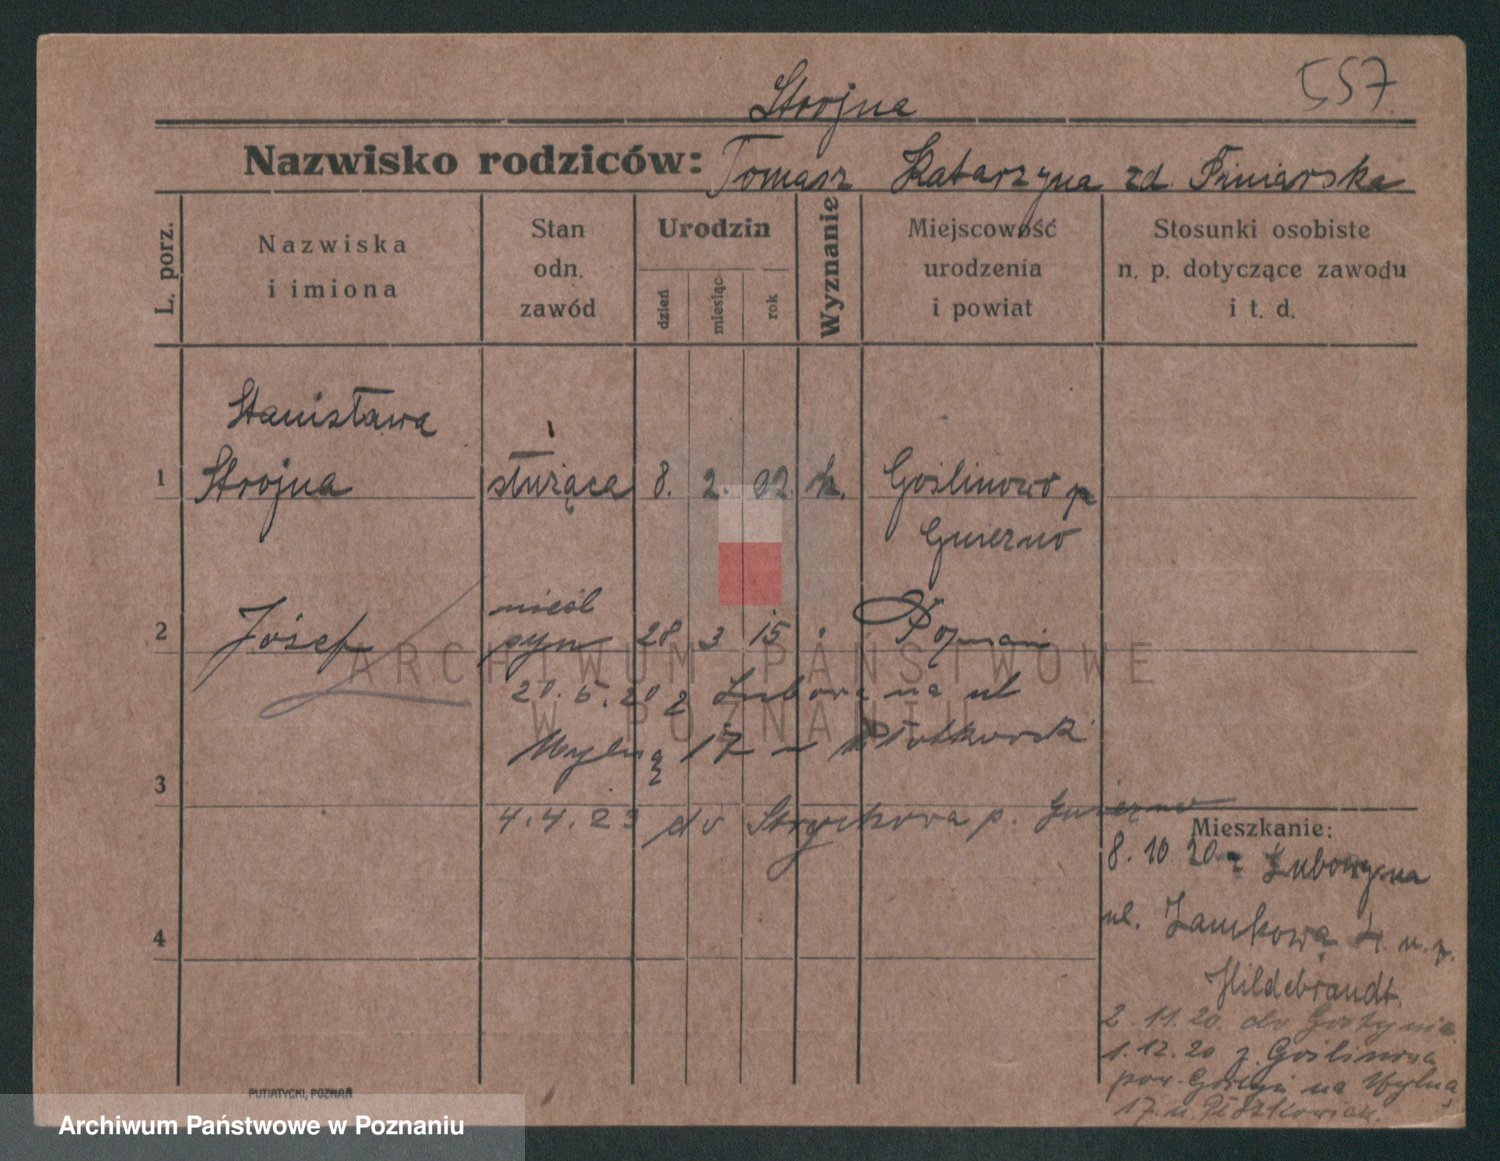 557.
Strojna
Nazwisko rodziców: Tomasz Katarzyna zd. Finiarska
L. porz.
Nazwiska
i imiona
Stan
odn.
zawód
Urodzin
dzień
miesiąc
rok
Wyznanie
Miejscowość
urodzenia
i powiat
Stosunki osobiste
n. p. dotyczące zawodu
i t. d.
Stanisława
1 Strojna służąca 8. 2. 02. k. Goślinowo p
Gniezno
nieśl
2 Józef syn 28 3 15 Poznań
20.5.20 z Lubowa na ul
Mylną 17
3
4.4.23 do Strychowa p. Gniezno
Mieszkanie:
8.10 20 z Lubowa na
ul. Zamkową 4. u. p.
4
Hildebrandt.
2.11.20. do Gostynia
1.12.20 z Goślinowa
pow. na Mylną
17. u.
PUTIATYCKI, POZNAŃ
ARCHIWUM PAŃSTWOWE
W POZNANIU
Archiwum Państwowe w Poznaniu